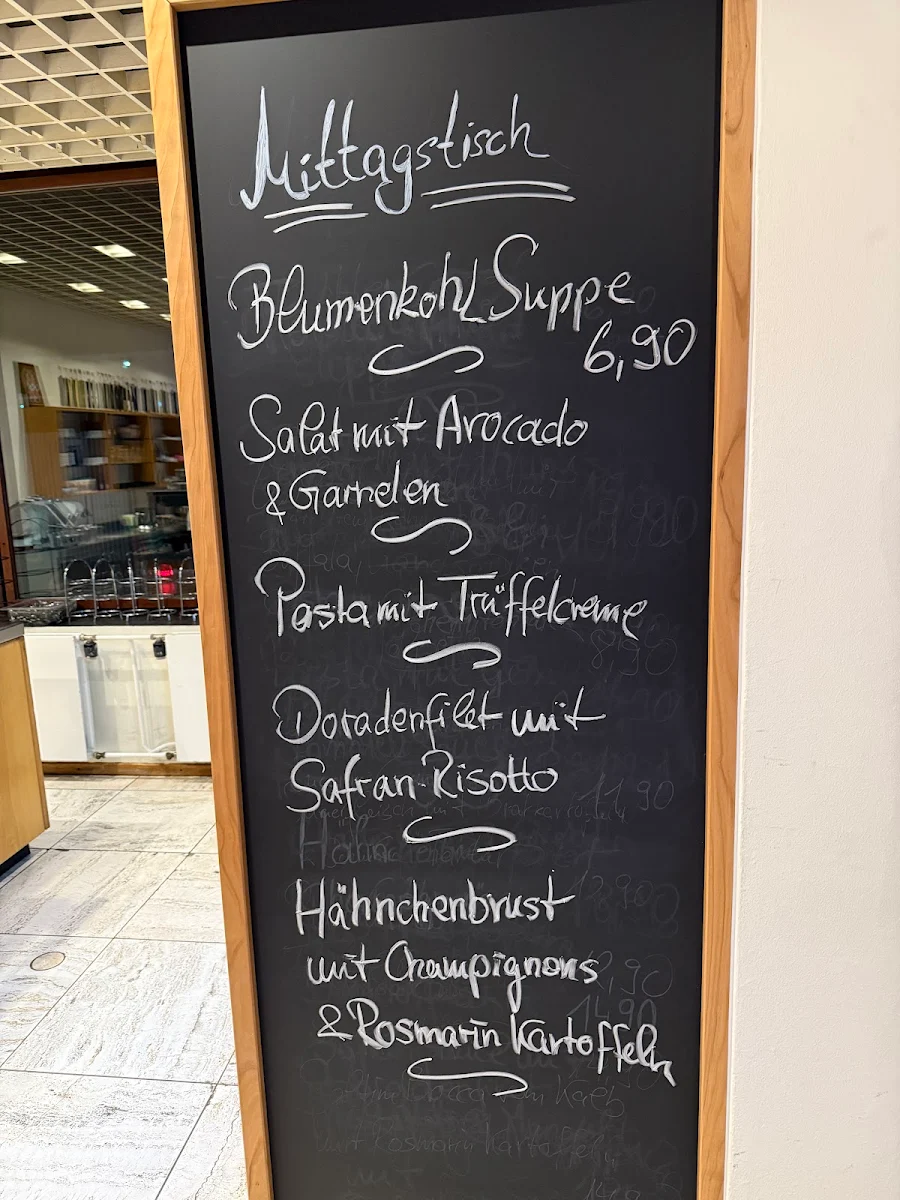 Mittagstisch
Blumenkohl Suppe
6,90
Salat mit Avocado
& Garnelen
Pasta mit Trüffelcreme
Doradenfilet mit
Safran-Risotto
Hähnchenbrust
mit Champignons
& Rosmarin Kartoffeln